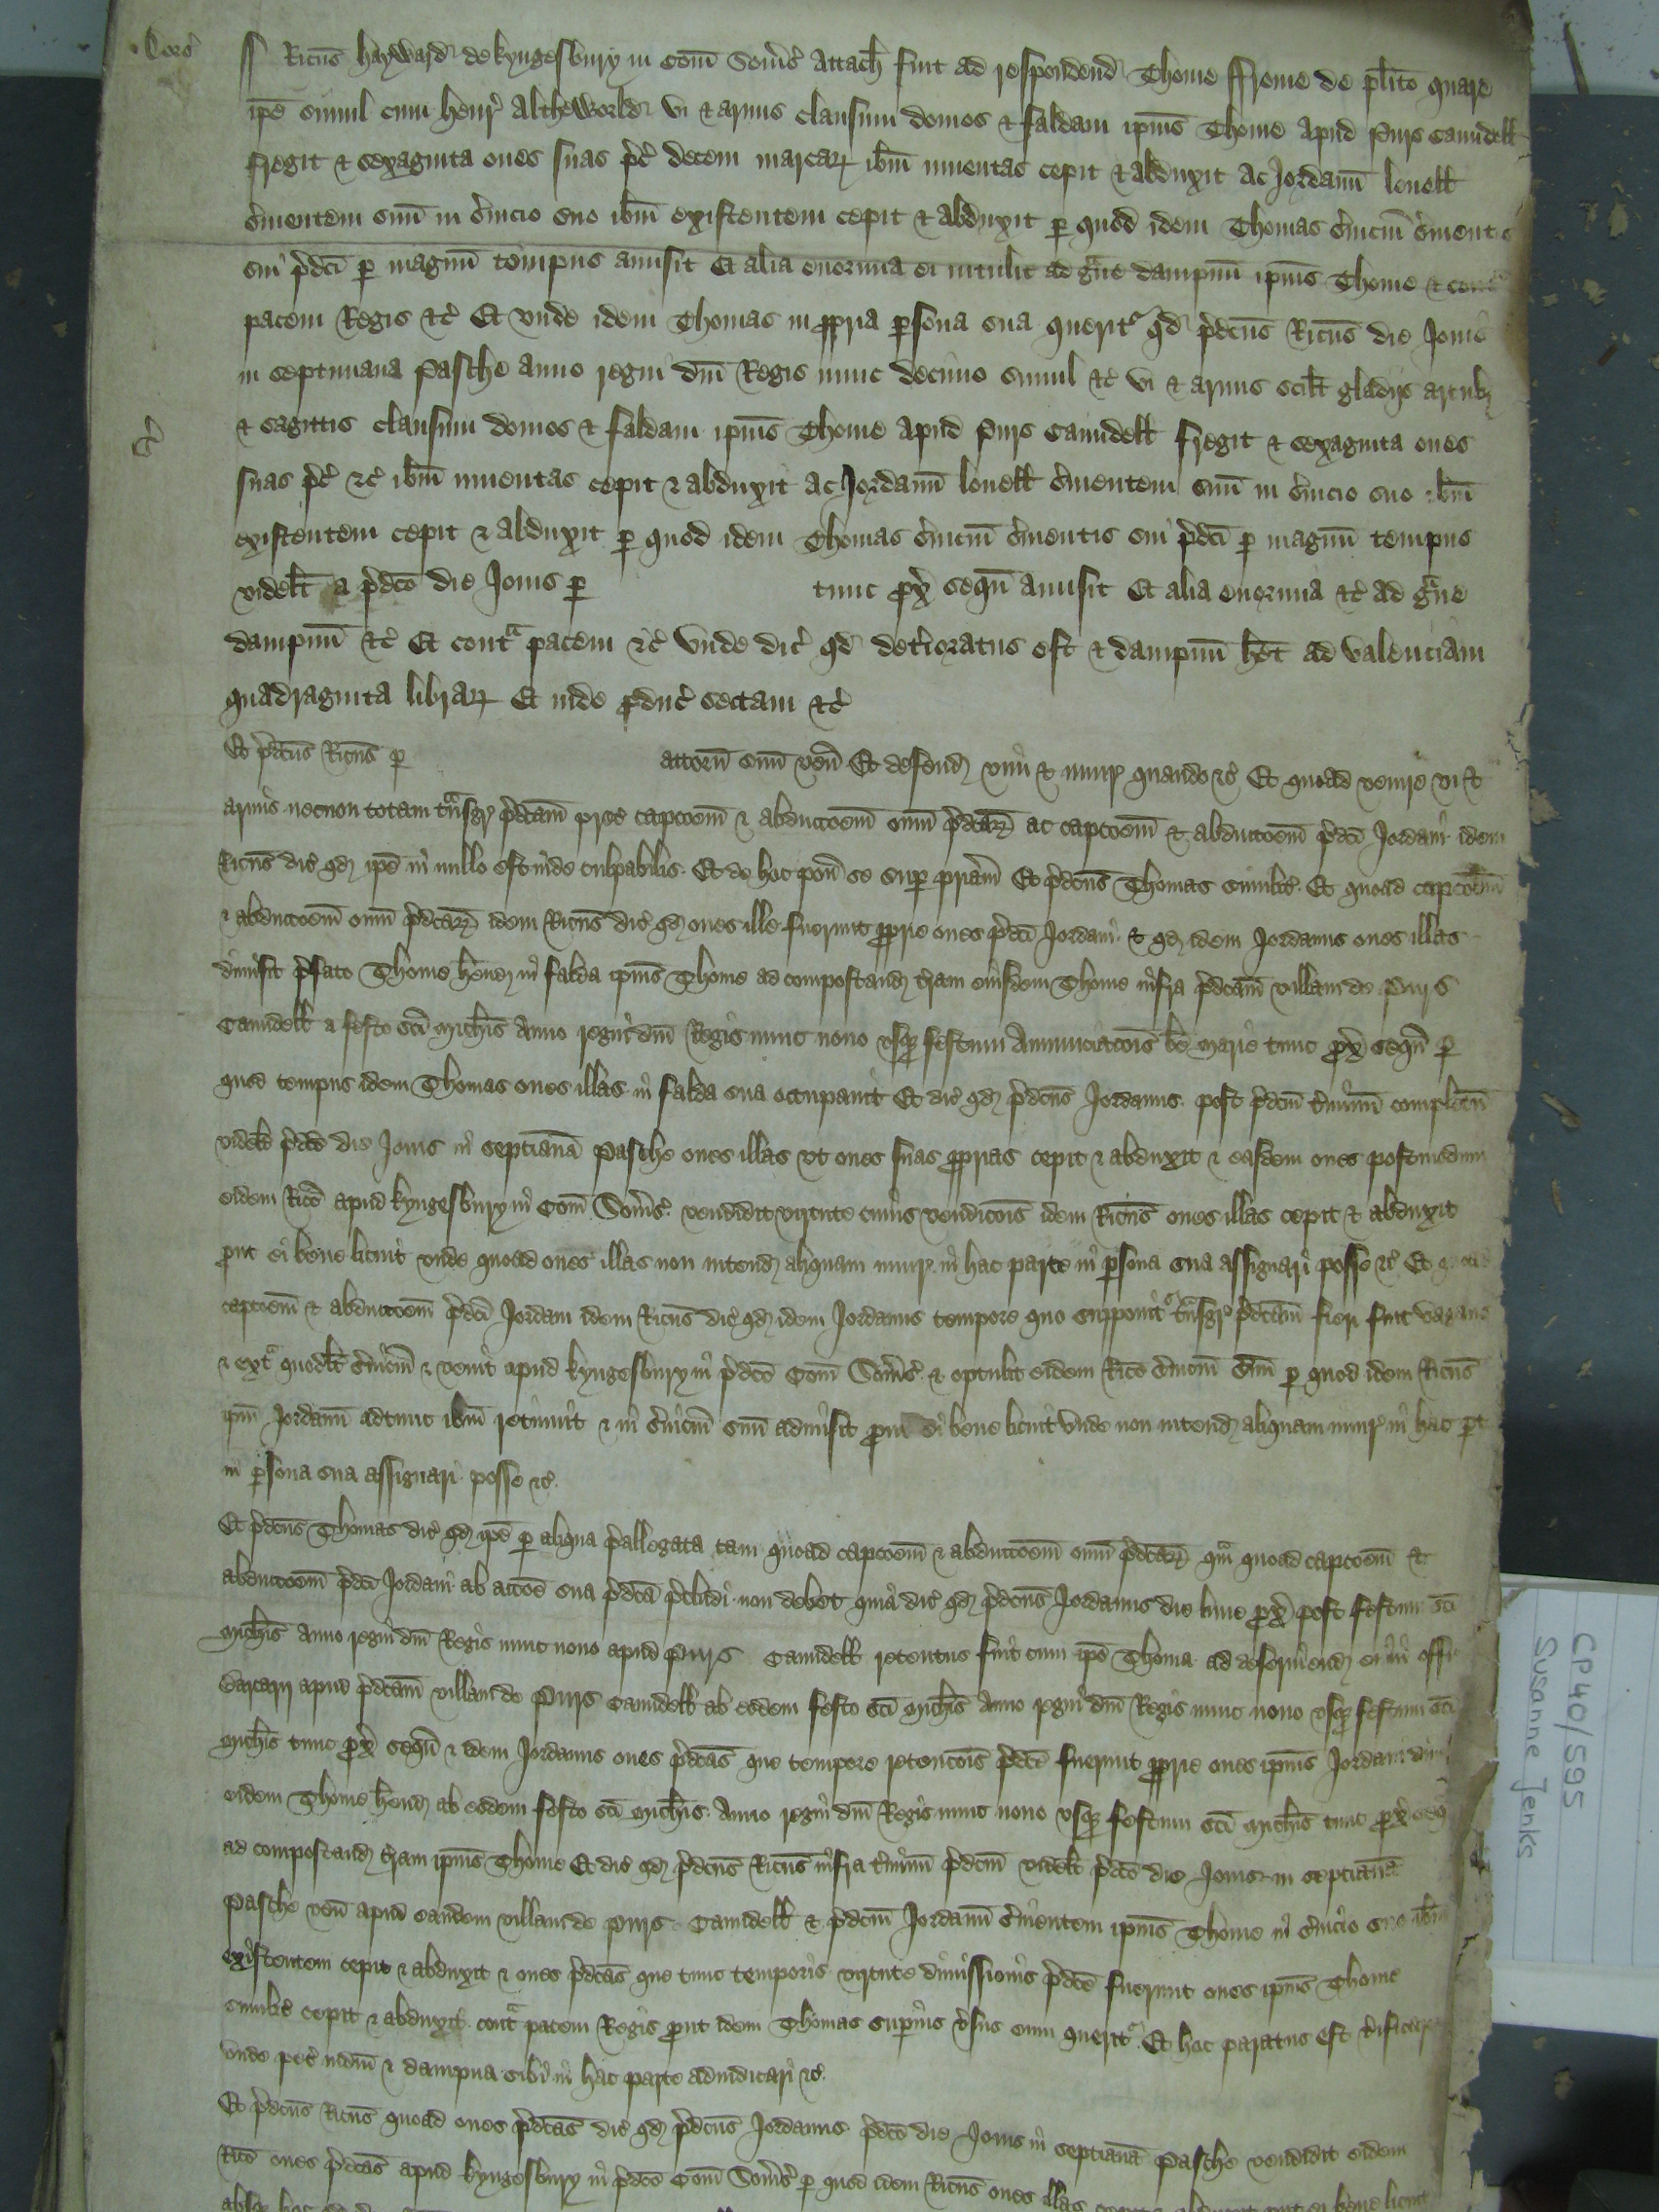 Dors'
Ricus Hayward de Kyngesbury in Com Soms' attach fuit ad respondend Thome Frome de plito quare
ipe simul cum Henr' Altheworlde vi & armis clausum domos & faldam ipius Thome apud Purs Caundell
fregit & sexaginta oues suas p'c' decem marcar ibm inuentas cepit & abduxit ac Jordanu Louell
s'uientem suu in s'uicio suo ibm existentem cepit & abduxit p quod idem Thomas s'uiciu s'uientis
sui p'dci p magnu tempus amisit Et alia enormia ei intulit ad g'ue dampnu ipius Thome & cont'
pacem Regis &c' Et vnde idem Thomas in ppria psona sua querit' qd p'dcus Ricus die Jouis
in septimana Pasche anno regni dni Regis nunc decimo simul &c' vi & armis scilt gladijs arcub
& sagittis clausum domos & faldam ipius Thome apud Purs Caundell fregit & sexaginta oues
suas p'c' &c' ibm inuentas cepit & abduxit ac Jordanu Louell s'uientem suu in s'uicio suo ibm
existentem cepit & abduxit p quod idem Thomas s'uiciu s'uientis sui p'dci p magnu tempus
videlt a p'dco die Jouis p tunc prox sequn amisit Et alia enormia &c' ad g'ue
dampnu &c' Et cont'a pacem &c' Vnde dic' qd det'ioratus est & dampnu het ad valenciam
quadraginta librar Et inde pduc' sectam &c'
Et p'dcus Ricus p attorn suu ven Et defend vim & iniur' quando &c' Et quoad venire vi &
armis necnon totam t'nsgr' p'dcam pret' capcoem & abduccoem ouiu p'dcar ac capcoem & abduccoem p'dci Jordani idem
Ricus dic' qd ipe in nullo est inde culpabilis Et de hoc pon se sup priam Et p'dcus Thomas similit' Et quoad capcoem
& abduccoem ouiu p'dcar idem Ricus dic' qd oues ille fuerunt pprie oues p'dci Jordani & qd idem Jordanus oues illas
dimisit p'fato Thome hend in falda ipius Thome ad compostand t'ram eiusdem Thome infra p'dcam villam de Purs
Caundell a festo sci Michis anno regni dni Regis nunc nono vsq festum Annunciacois be Marie tunc prox sequn p
quod tempus idem Thomas oues illas in falda sua occupauit Et dic' qd p'dcus Jordanus post p'dcm t'minu completu
videlt p'dco die Jouis in septiana Pasche oues illas vt oues suas pprias cepit & abduxit & easdem oues postmodum
eidem Rico apud Kyngesbury in Com Soms' vendidit virtute cuius vendicois idem Ricus oues illas cepit & abduxit
put ei bene licuit vnde quoad oues illas non intend aliquam iniur' in hac parte in psona sua assignari posse &c' Et quoad
capcoem & abduccoem p'dci Jordani idem Ricus dic' qd idem Jordanus tempore quo supponit' t'nsgr' p'dcam fieri fuit vagans
& ext' quodlt s'uiciu & venit apud Kyngesbury in p'dco Com Soms' & optulit eidem Rico s'uiciu suu p quod idem Ricus
ipm Jordanu adtunc ibm retinuit & in s'uiciu suu admisit prout ei bene licuit vnde non intend aliquam iniur' in hac pte
in psona sua assignari posse &c'
Et p'dcus Thomas dic' qd ipe p aliqua p'allegata tam quoad capcoem & abduccoem ouiu p'dcar qm quoad capcoem &
abduccoem p'dci Jordani ab accoe sua p'dca p'cludi non debet quia dic' qd p'dcus Jordanus die lune prox post festum sci
Michis anno regni dni Regis nunc nono apud Purs Caundell retentus fuit cum ipo Thoma ad deseruiend ei in offi
bercarij apud p'dcam villam de Purs Caundell ab eodem festo sci Michis anno regni dni Regis nunc nono vsq festum sci
Michis tunc prox sequn & idem Jordanus oues p'dcas que tempore retencois p'dce fuerunt pprie oues ipius Jordani dimi
eidem Thome hend ab eodem festo sci Michis anno regni dni Regis nunc nono vsq festum sci Michis tunc prox sequ
ad compostand t'ram ipius Thome Et dic' qd p'dcus Ricus infra t'minu p'dcm videlt p'dco die Jouis in septiana
Pasche ven apud eandem villam de Purs Caundell & p'dcm Jordanu s'uientem ipius Thome in s'uicio suo ibm
existentem cepit & abduxit & oues p'dcas que tunc temporis virtute dimissionis p'dce fuerunt oues ipius Thome
similit' cepit & abduxit cont'a pacem Regis prout idem Thomas superius v'sus eum querit' Et hoc paratus est v'ificare
vnde pet' iudm & dampna sibi in hac parte adiudicari &c'
Et p'dcus Ricus quoad oues p'dcas dic' qd p'dcus Jordanus p'dco die Jouis in septiana Pasche vendidit eidem
Rico oues p'dcas apud Kyngesbury in p'dco Com Soms' p quod idem Ricus oues illas cepit & abduxit put ei bene licuit
absq hoc qd
CP40/595
Susanne Jenks